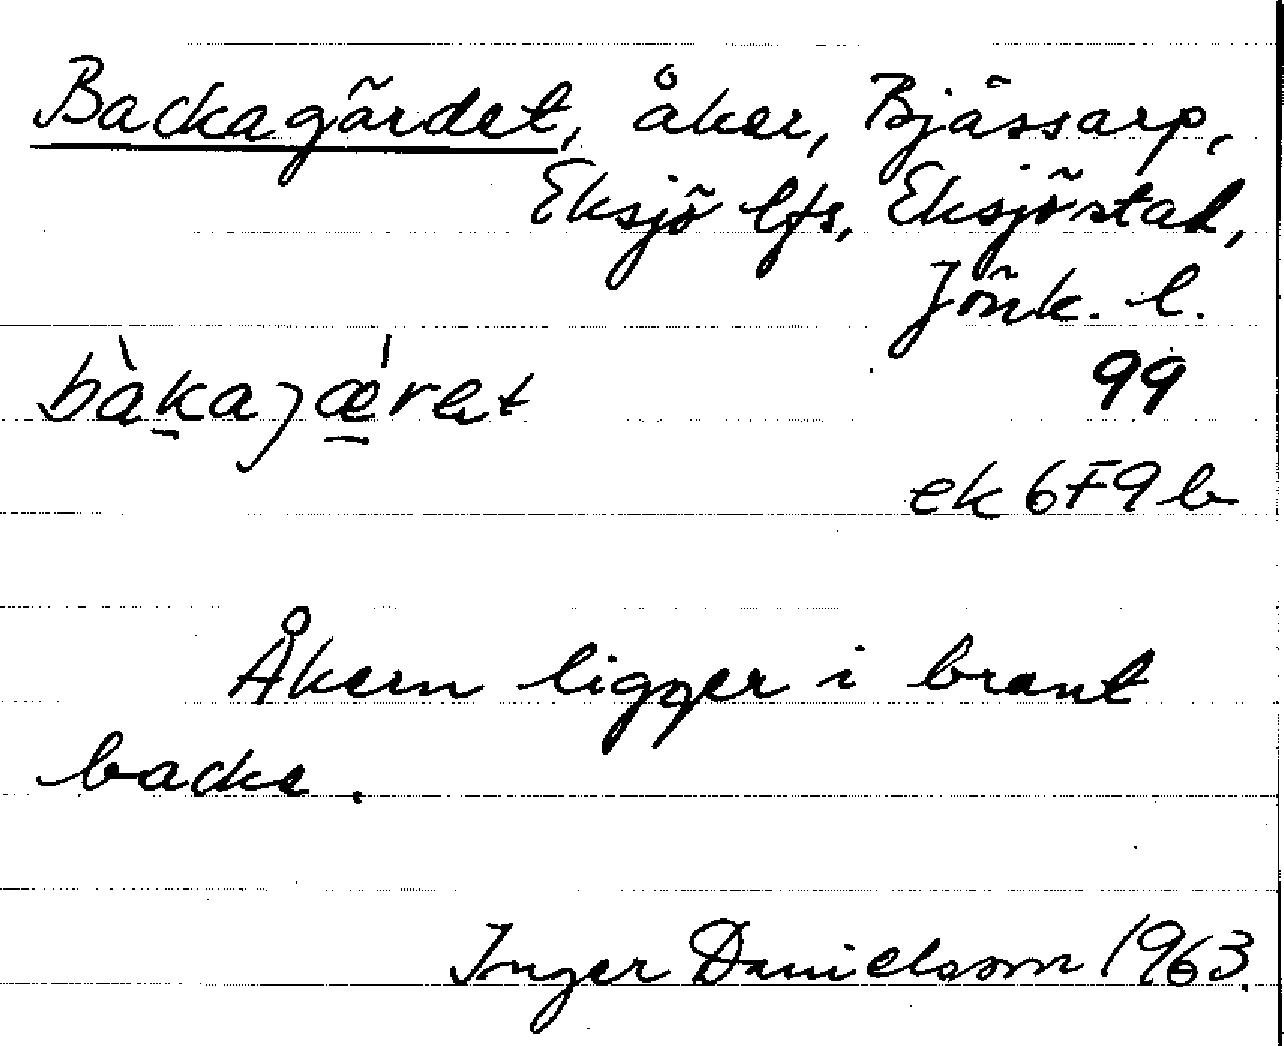 Backagärdet, åker, Bjässarp,
Eksjö lfs, Eksjö stad,
Jönk. l.
bàkajæ̀ret 99
ek 6F9b
Åkern ligger i brant
backe.
Inger Danielsson 1963.